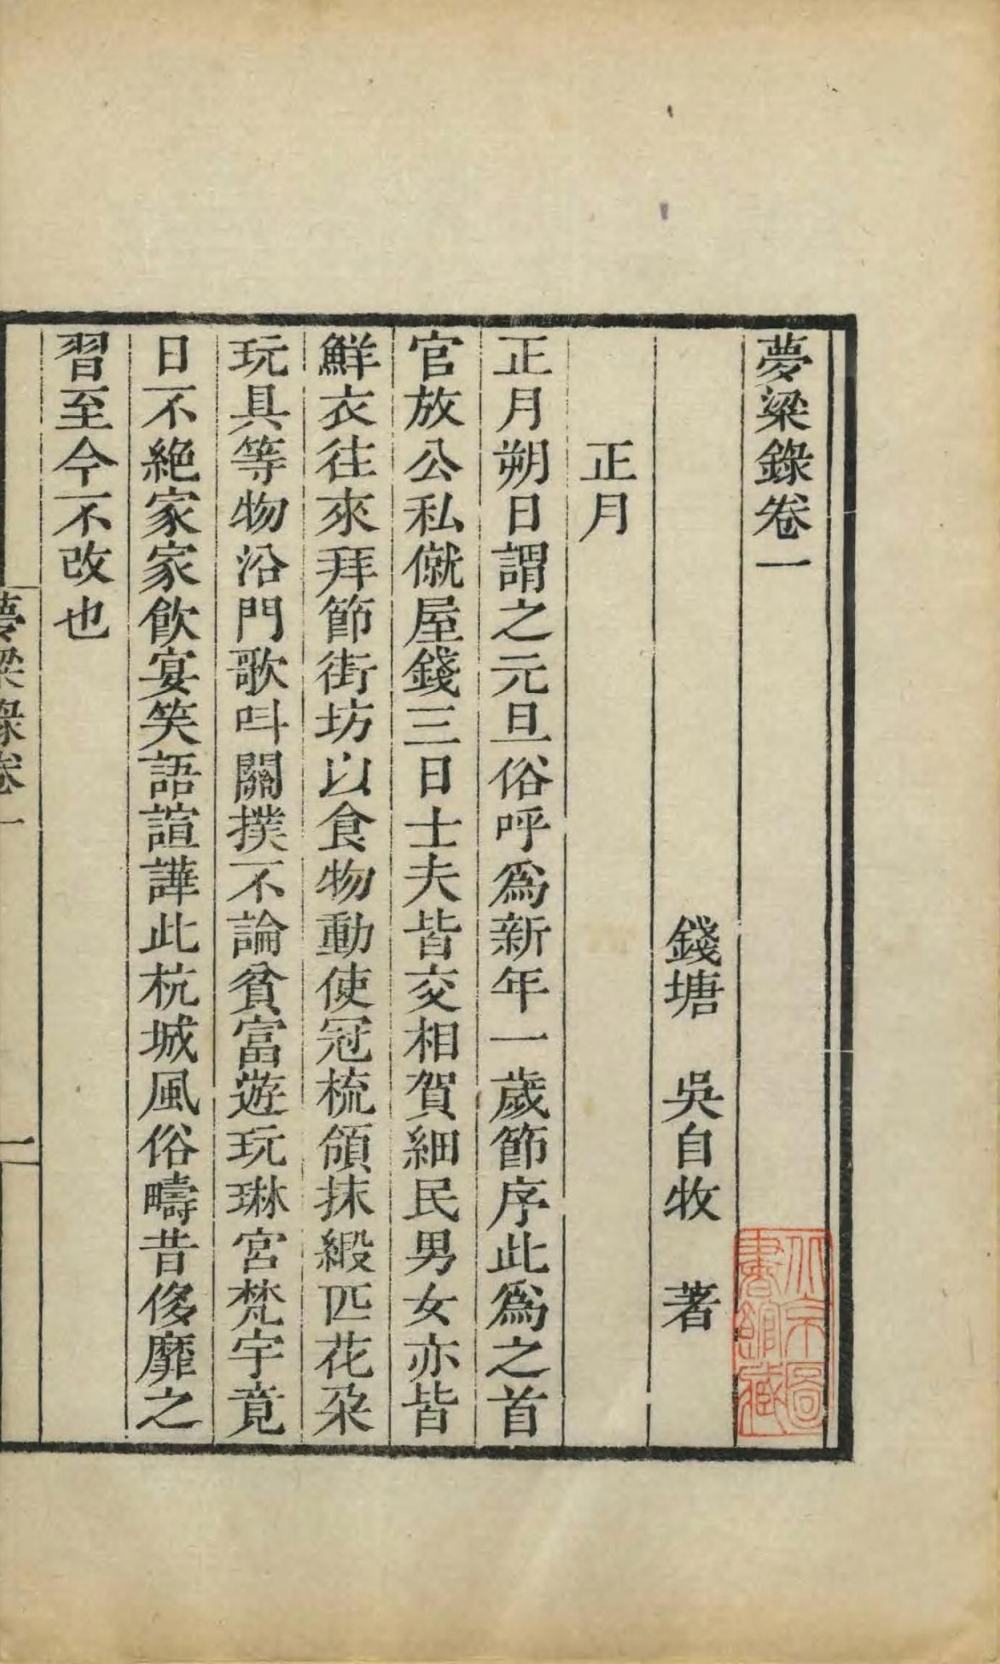 夢粱錄卷一
錢塘 吳自牧 著
正月
正月朔日謂之元旦俗呼爲新年一歲節序此爲之首
官放公私僦屋錢三日士夫皆交相賀細民男女亦皆
鮮衣往來拜節街坊以食物動使冠梳領抹緞匹花朶
玩具等物沿門歌呌關撲不論貧富遊玩琳宮梵宇竟
日不絕家家飮宴笑語諠譁此杭城風俗疇昔侈靡之
習至今不改也
夢粱錄卷一
一